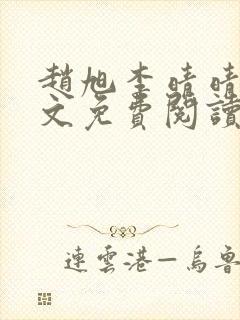 趙旭李晴晴
文免費閱讀
連雲港—烏魯